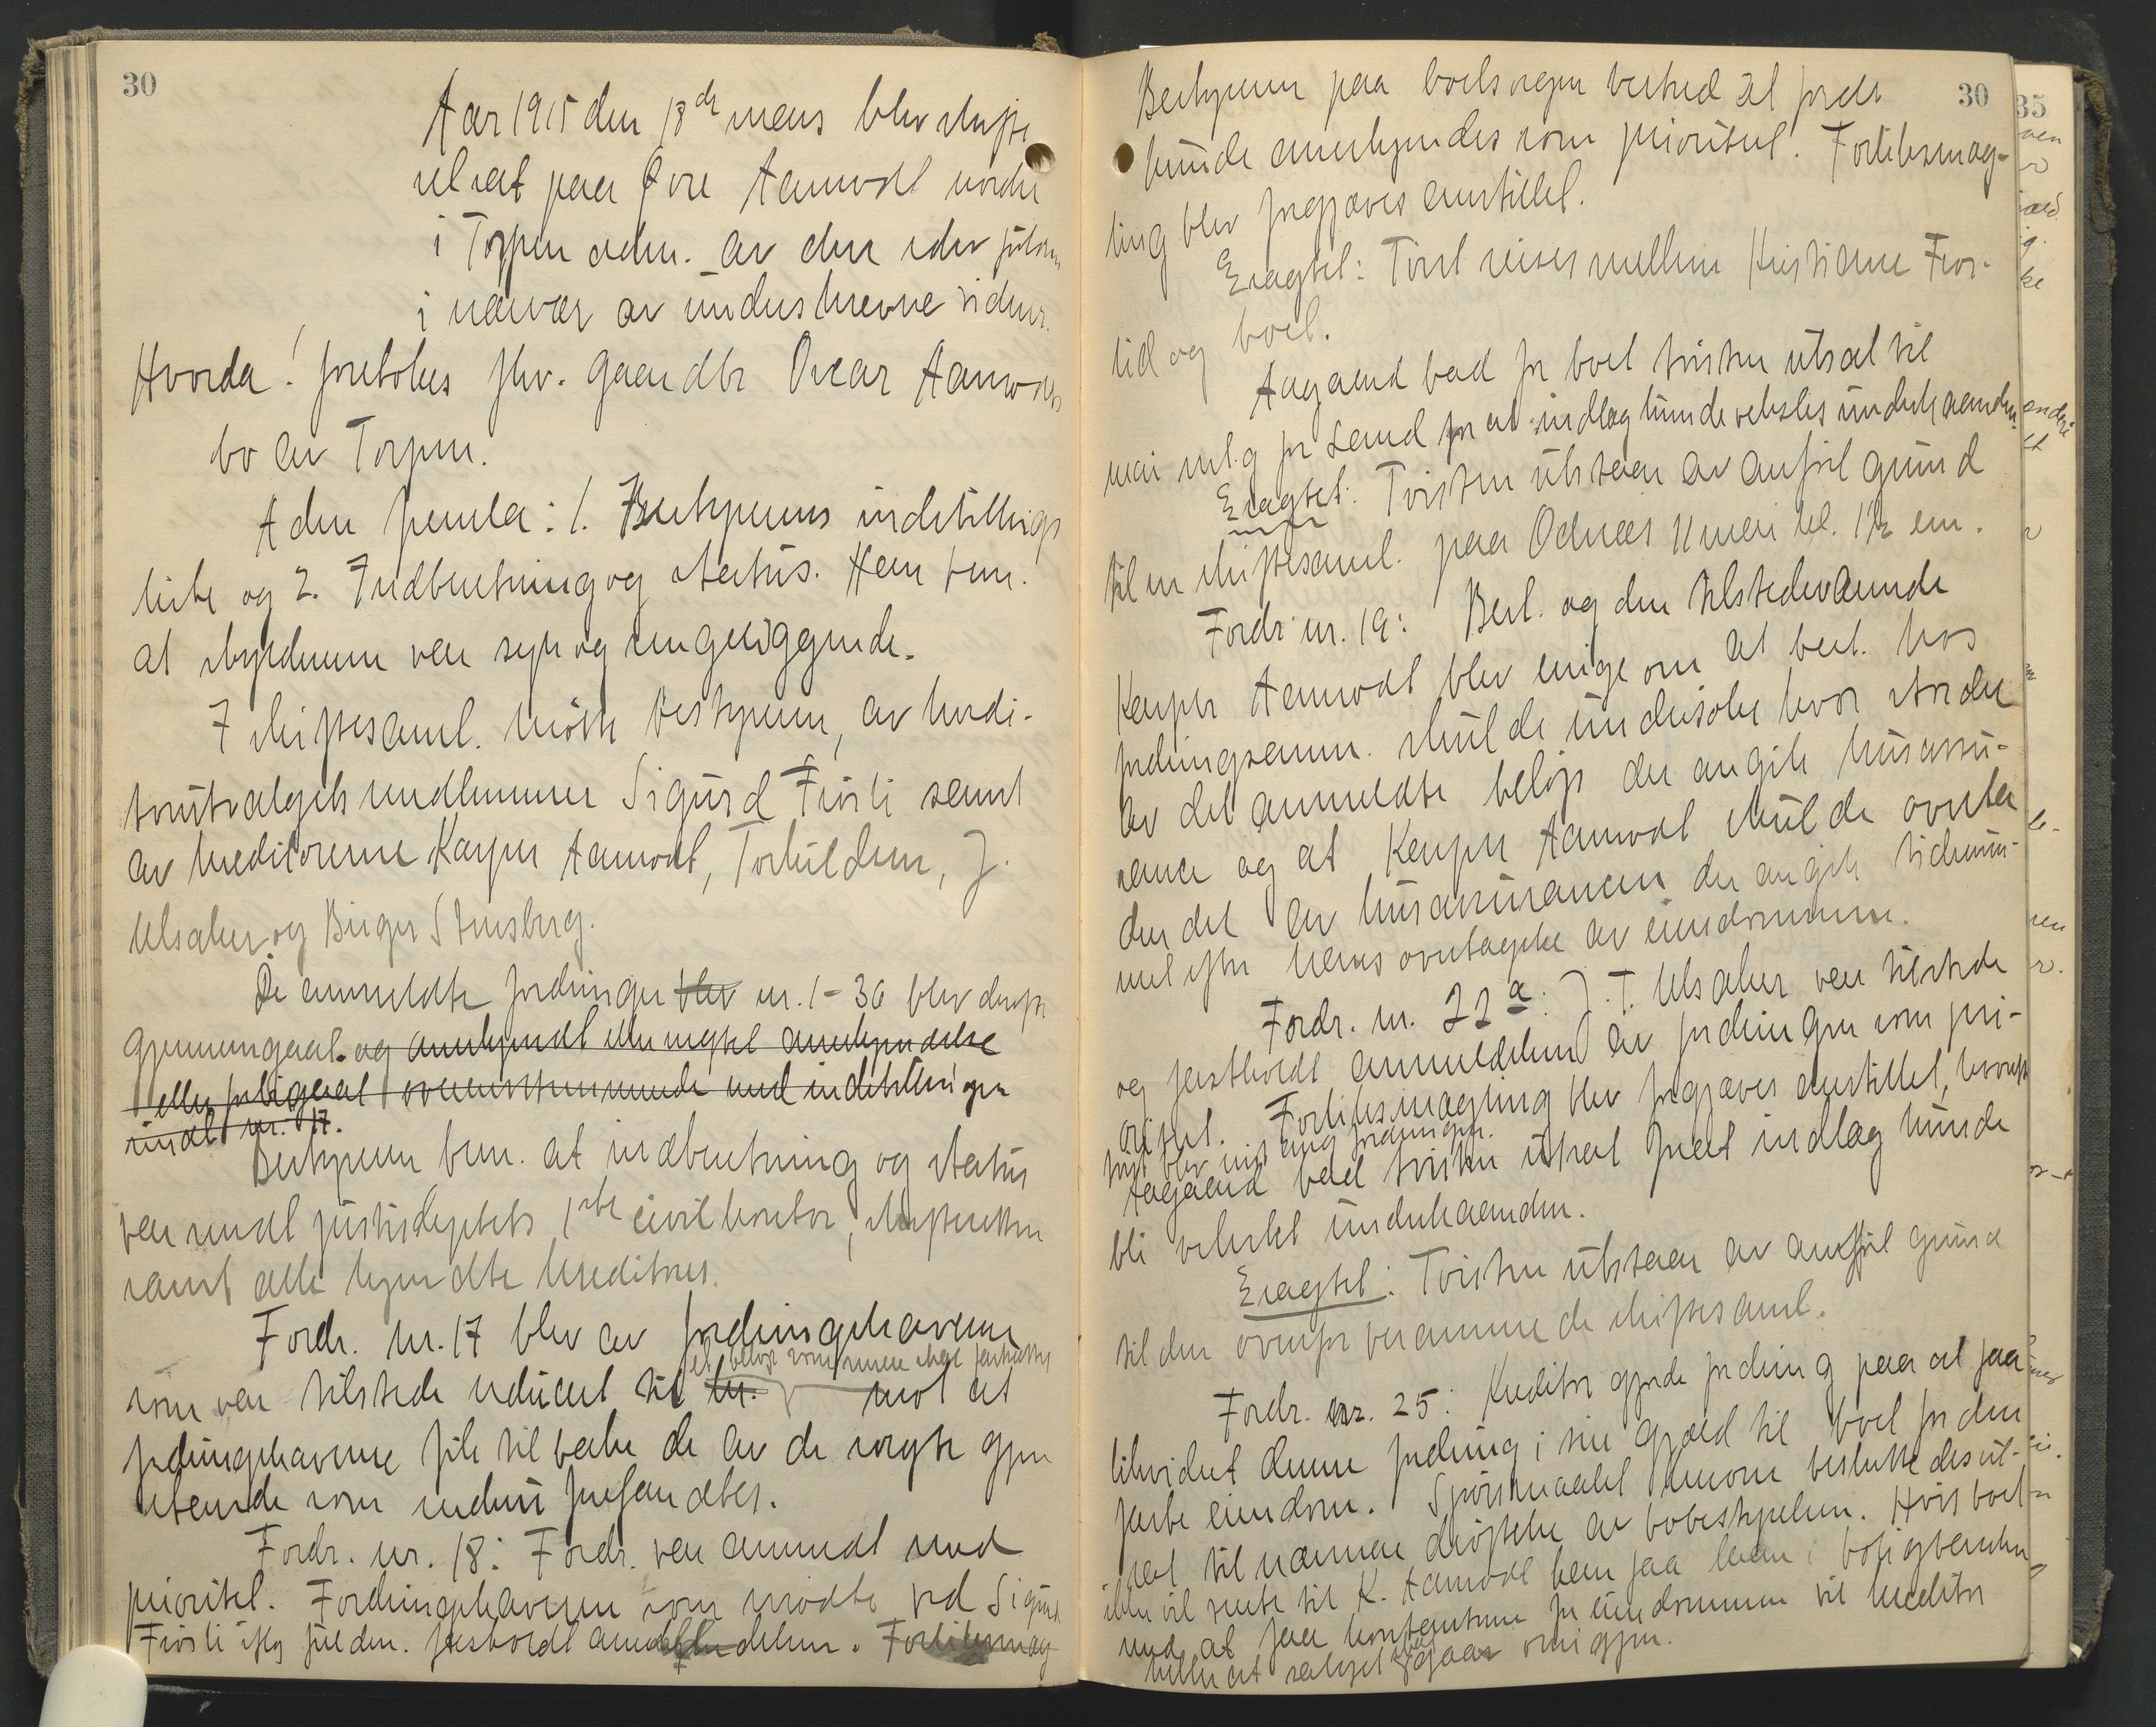 30
Aar 1915 den 18de mars blev skifte
ret sat paa Øvre Aamodt nordre
i Torpen adm. av den edsv fuldm
i nærvær av underskrevne vidner.
Hvorda! foretokes fhv. gaardbr Oscar Aamodts
bo av Torpen.
Adm fremla: 1. Bestyrerens indstillings
liste og 2. Indberetning og status. Han bem.
at skyldneren var syk og sengeliggende.
I skiftesaml. møtte bestyreren, av kredi-
torutvalgets medlemmer Sigurd Fiøsli samt
av kreditorerne Kasper Aamodt, Torkildsen, J.
Ulsaker og Birger Stensberg.
De anmeldte fordringer blev nr. 1-36 blev derefter
gjennemgaat. og anerkjendt eller negtet anerkjendelse
eller forbigaat overensstemmende med indstillingen
indtil nr. 17.
Bestyreren bem. at indberetning og status
var sendt justisdeptets 1ste civilkontor, skifteretten
samt alle kjendte kreditorer.
Fordr. nr. 17 blev av fordringshaveren
et beløp som senere skal fastsættes
som var tilstede reducert til kr. mot at
fordringshaverne fik tilbake de av de solgte gjen
stande som endnu forefandtes.
Fordr. nr. 18: Fordr. var anmeldt med
prioritet. Fordringshaveren som mødte ved Sigurd
Fiøsli iflg fuldm. fastholdt anmeldelsen. Forliksmæg
30
Bestyreren paa boets vegne bestred at fordr.
kunde anerkjendes som prioritert. Forliksmæg-
ling blev forgjæves anstillet.
Eragtet: Tvist reises mellem Kristiane Fios-
lid og boet.
Aagaard bad for boet tvisten utsat til
mai md. g for Land for at indlæg kunde veksles underhaanden.
Eragtet: Tvisten utstaar av anført grund
til en skiftesaml. paa Odnæs 11 mai kl. 1½ em.
Fordr. nr. 19: Best. og den tilstedeværende
Kasper Aamodt blev enige om at best. hos
fordringsanm. skulde undersøke hvor stor del
av det anmeldte beløp der angik husassu-
rance og at Kasper Aamodt skulde overta
den del av husassurancen der angik tidsrum-
met efter hans overtagelse av eiendommen.
Fordr. nr. 22a: J. T. Ulsaker var tilstede
og fastholdt anmeldelsen av fordringen som pri-
oritert. Forliksmægling blev forgjæves anstillet, hvorefter
tvist blev reist ang fordringen.
Aagaard bad tvisten utsat forat indlæg kunde
bli vekslet underhaanden.
Eragtet: Tvisten utstaar av anført grund
til den ovenfor berammede skiftesaml.
Fordr. nr. 25: Kreditor gjorde fordring paa at faa
likvidert denne fordring i sin gjæld til boet for den
kjøpte eiendom. Spørsmaalet herom besluttedes ut-
sat til nærmere drøftelse av bobestyrelsen. Hvis boet
ikke vil rente til K. Aamodt han faa laan i boligbanken
med at faa kontantene for eiendommen vil kreditor
heller at salget gaar om igjen.
35